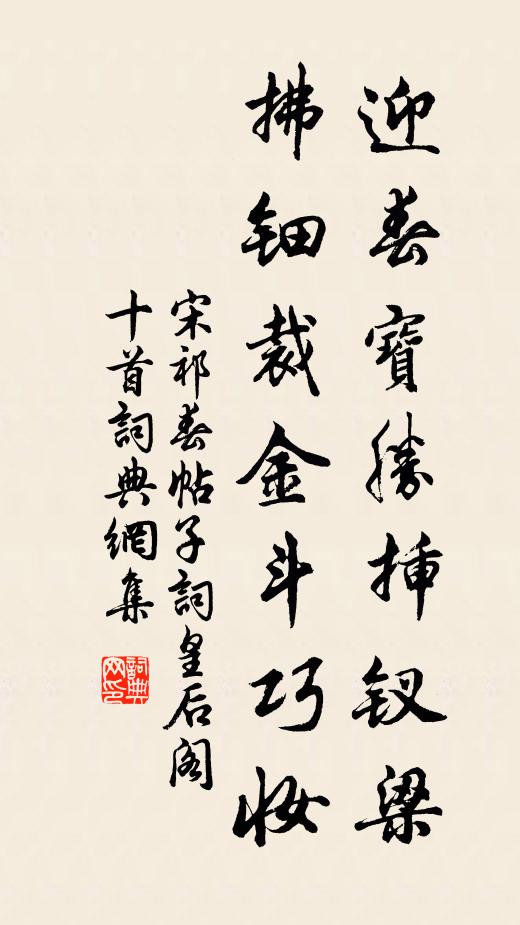 迎春寶勝插钗梁
拂钿裁金斗巧妆
宋祁春帖子詞皇后阁
十首詞典網集
詞典网印